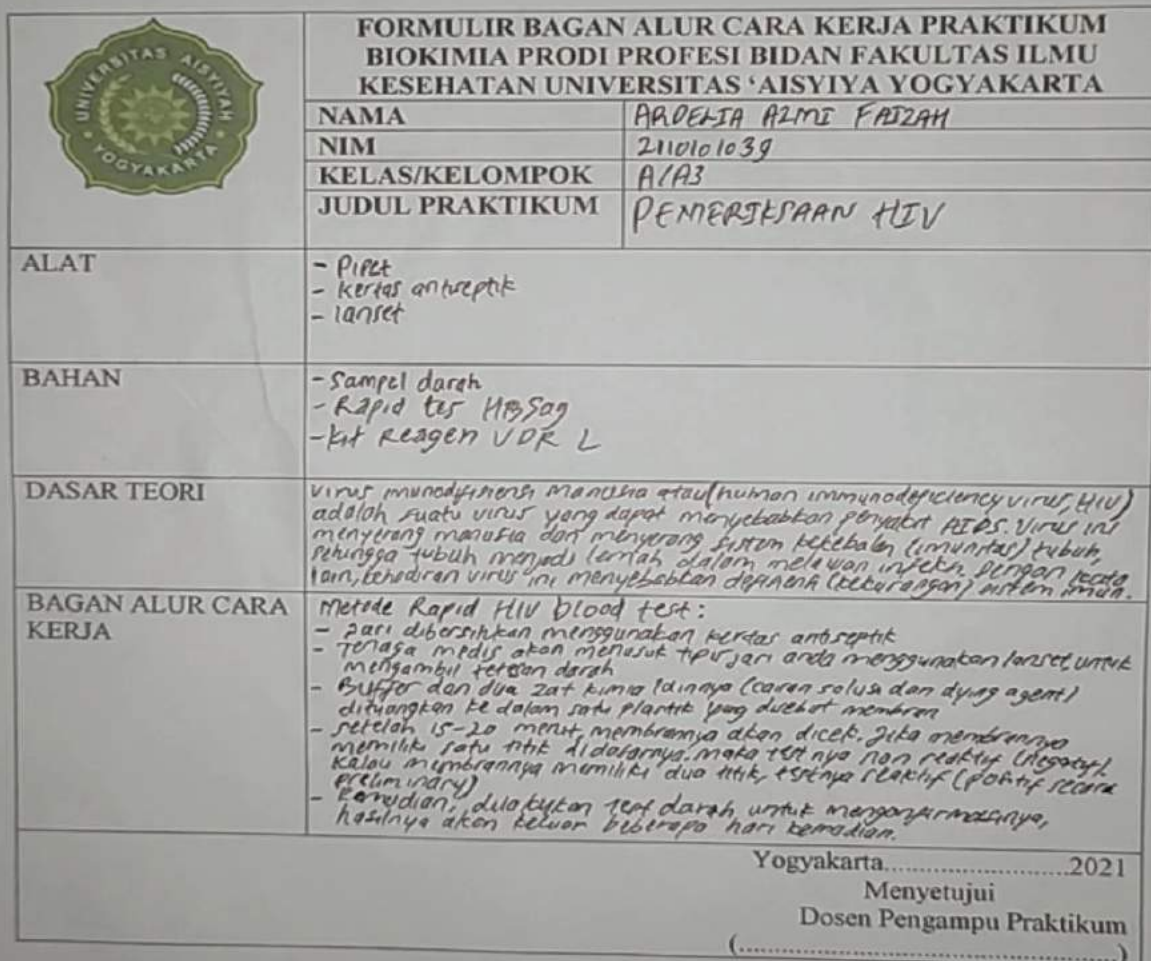 UNIVERSITAS 'AISYIYAH
YOGYAKARTA
FORMULIR BAGAN ALUR CARA KERJA PRAKTIKUM
BIOKIMIA PRODI PROFESI BIDAN FAKULTAS ILMU
KESEHATAN UNIVERSITAS 'AISYIYA YOGYAKARTA
NAMA ARDELIA AZMI FAIZAH
NIM 2110101039
KELAS/KELOMPOK A/A3
JUDUL PRAKTIKUM PEMERIKSAAN HIV
ALAT
- Pipet
- kertas antiseptik
- lanset
BAHAN
- Sampel darah
- Rapid tes HBSag
- kit Reagen VDR L
DASAR TEORI
Virus imunodefisiensi manusia atau (human immunodeficiency virus, HIV)
adalah suatu virus yang dapat menyebabkan penyakit AIDS. Virus ini
menyerang manusia dan menyerang sistem kekebalan (imunitas) tubuh,
sehingga tubuh menjadi lemah dalam melawan infeksi. Dengan kata
lain, kehadiran virus ini menyebabkan defisiensi (kekurangan) sistem imun.
BAGAN ALUR CARA
KERJA
Metode Rapid HIV blood test:
- Jari dibersihkan menggunakan kertas antiseptik
- Tenaga medis akan menusuk tipis jari anda menggunakan lanset untuk
mengambil tetesan darah
- Buffer dan dua zat kimia lainnya (cairan solusi dan dying agent)
dituangkan ke dalam satu plastik yang disebut membran
- setelah 15-20 menit, membrannya akan dicek. Jika membrannya
memiliki satu titik didasarnya. maka testnya non reaktif (negatif).
Kalau membrannya memiliki dua titik, testnya reaktif (positif secara
preliminary)
- Kemudian, dilakukan test darah untuk mengonfirmasinya,
hasilnya akan keluar beberapa hari kemudian.
Yogyakarta..........................2021
Menyetujui
Dosen Pengampu Praktikum
(....................................................)